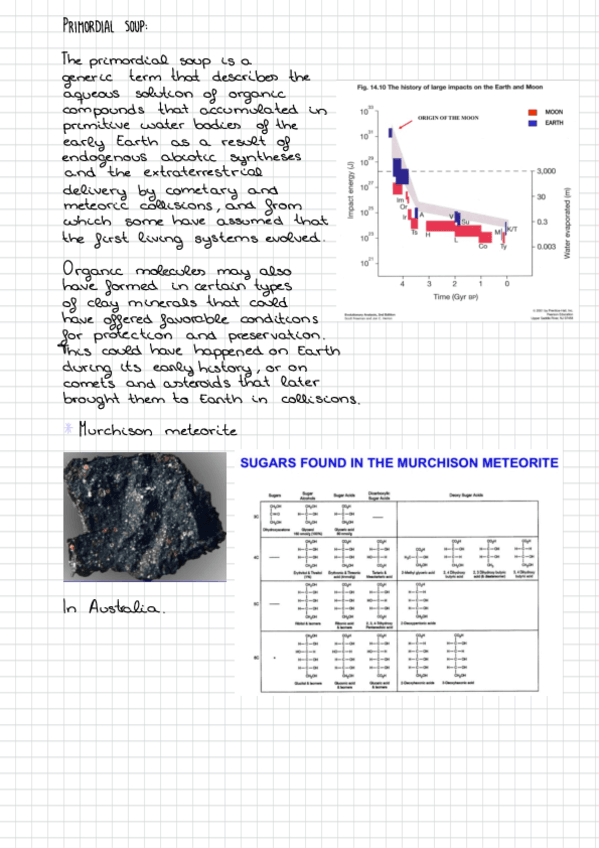 PRIMORDIAL SOUP:
The primordial soup is a
generic term that describes the
aqueous solution of organic
compounds that accumulated in
primitive water bodies of the
early Earth as a result of
endogenous abiotic syntheses
and the extraterrestrial
delivery by cometary and
meteoric collisions, and from
which some have assumed that
the first living systems evolved.
Organic molecules may also
have formed in certain types
of clay minerals that could
have offered favorable conditions
for protection and preservation.
This could have happened on Earth
during its early history, or on
comets and asteroids that later
brought them to Earth in collisions.
Murchison meteorite
In Australia.
Fig. 14.10 The history of large impacts on the Earth and Moon
ORIGIN OF THE MOON
MOON
EARTH
Impact energy (J)
3,000
30
0.3
0.003
Water evaporated (m)
Im
Or
Ir
A
Is
H
V
Su
L
Co
M
K/T
Ty
4 3 2 1 0
Time (Gyr BP)
SUGARS FOUND IN THE MURCHISON METEORITE
Sugars
Sugar Alcohols
Sugar Acids
Dicarboxylic Sugar Acids
Deoxy Sugar Acids
Dihydroxyacetone